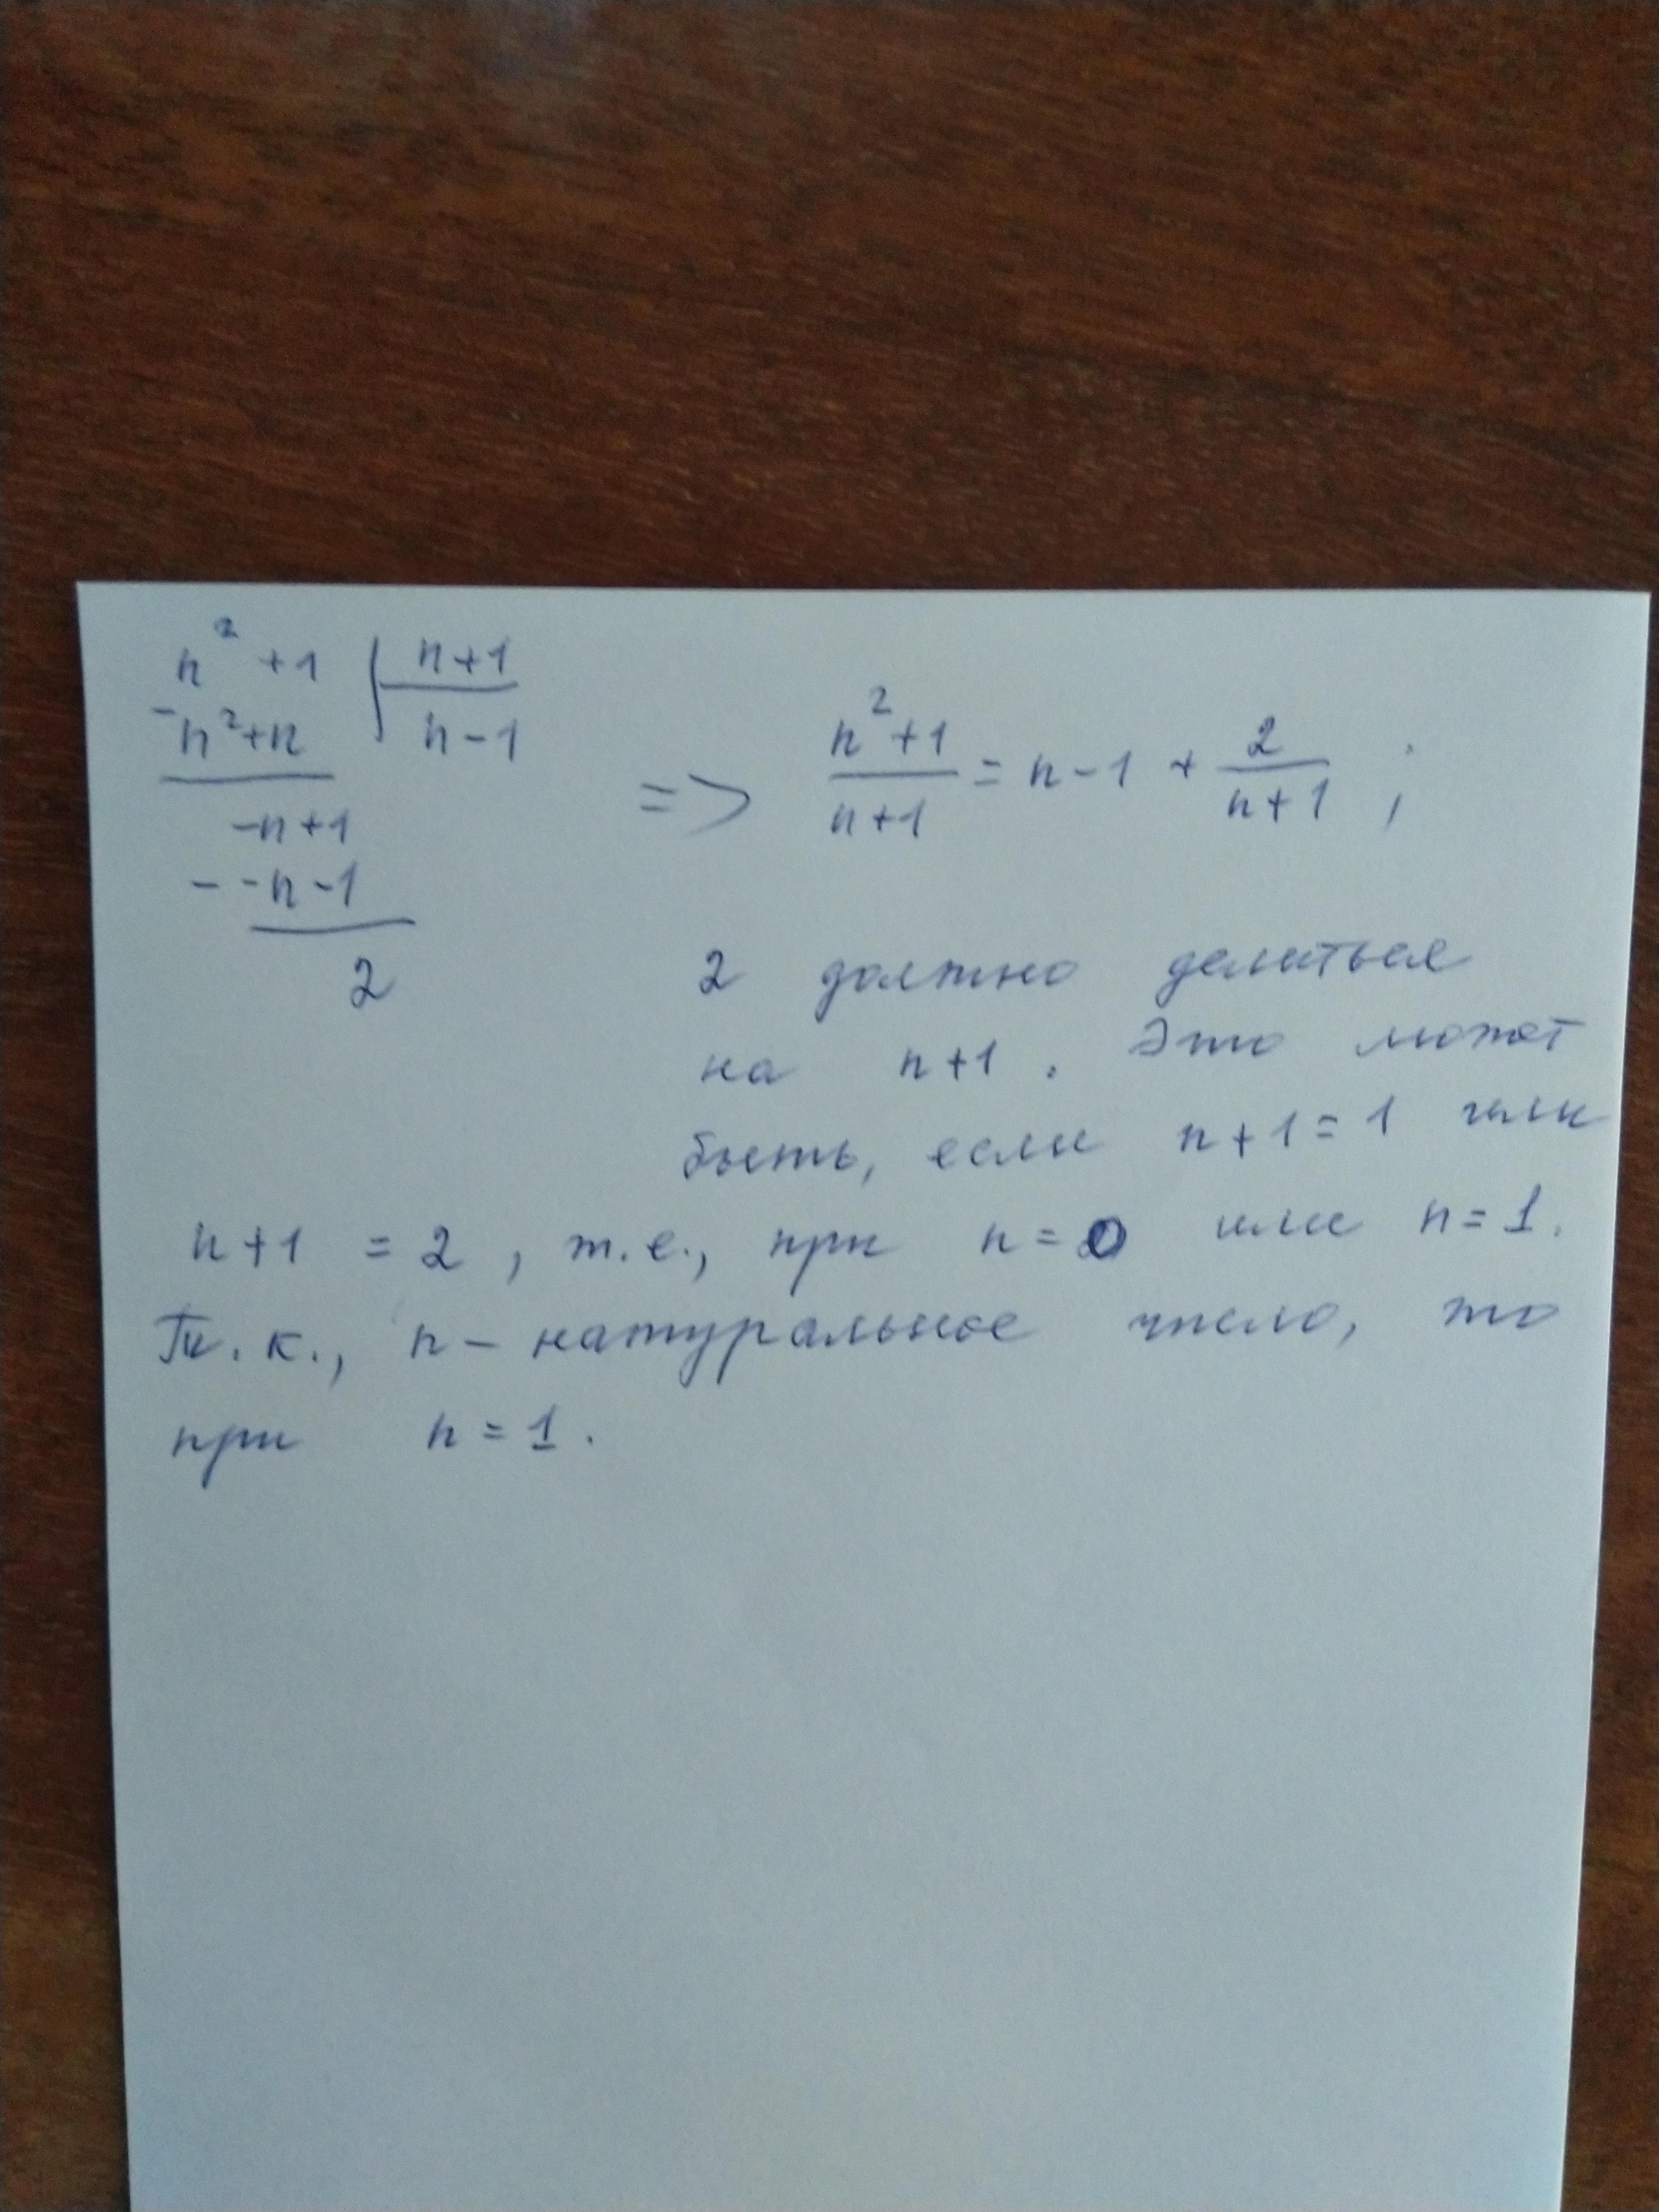 n² + 1 | n+1
- n² + n | n - 1
-n + 1
- -n - 1
2
=> n² + 1 / n + 1 = n - 1 + 2 / n + 1 ;
2 должно делиться
на n+1. Это может
быть, если n+1=1 или
n+1 = 2, т.е., при n=0 или n=1.
Т.к., n - натуральное число, то
при n = 1.